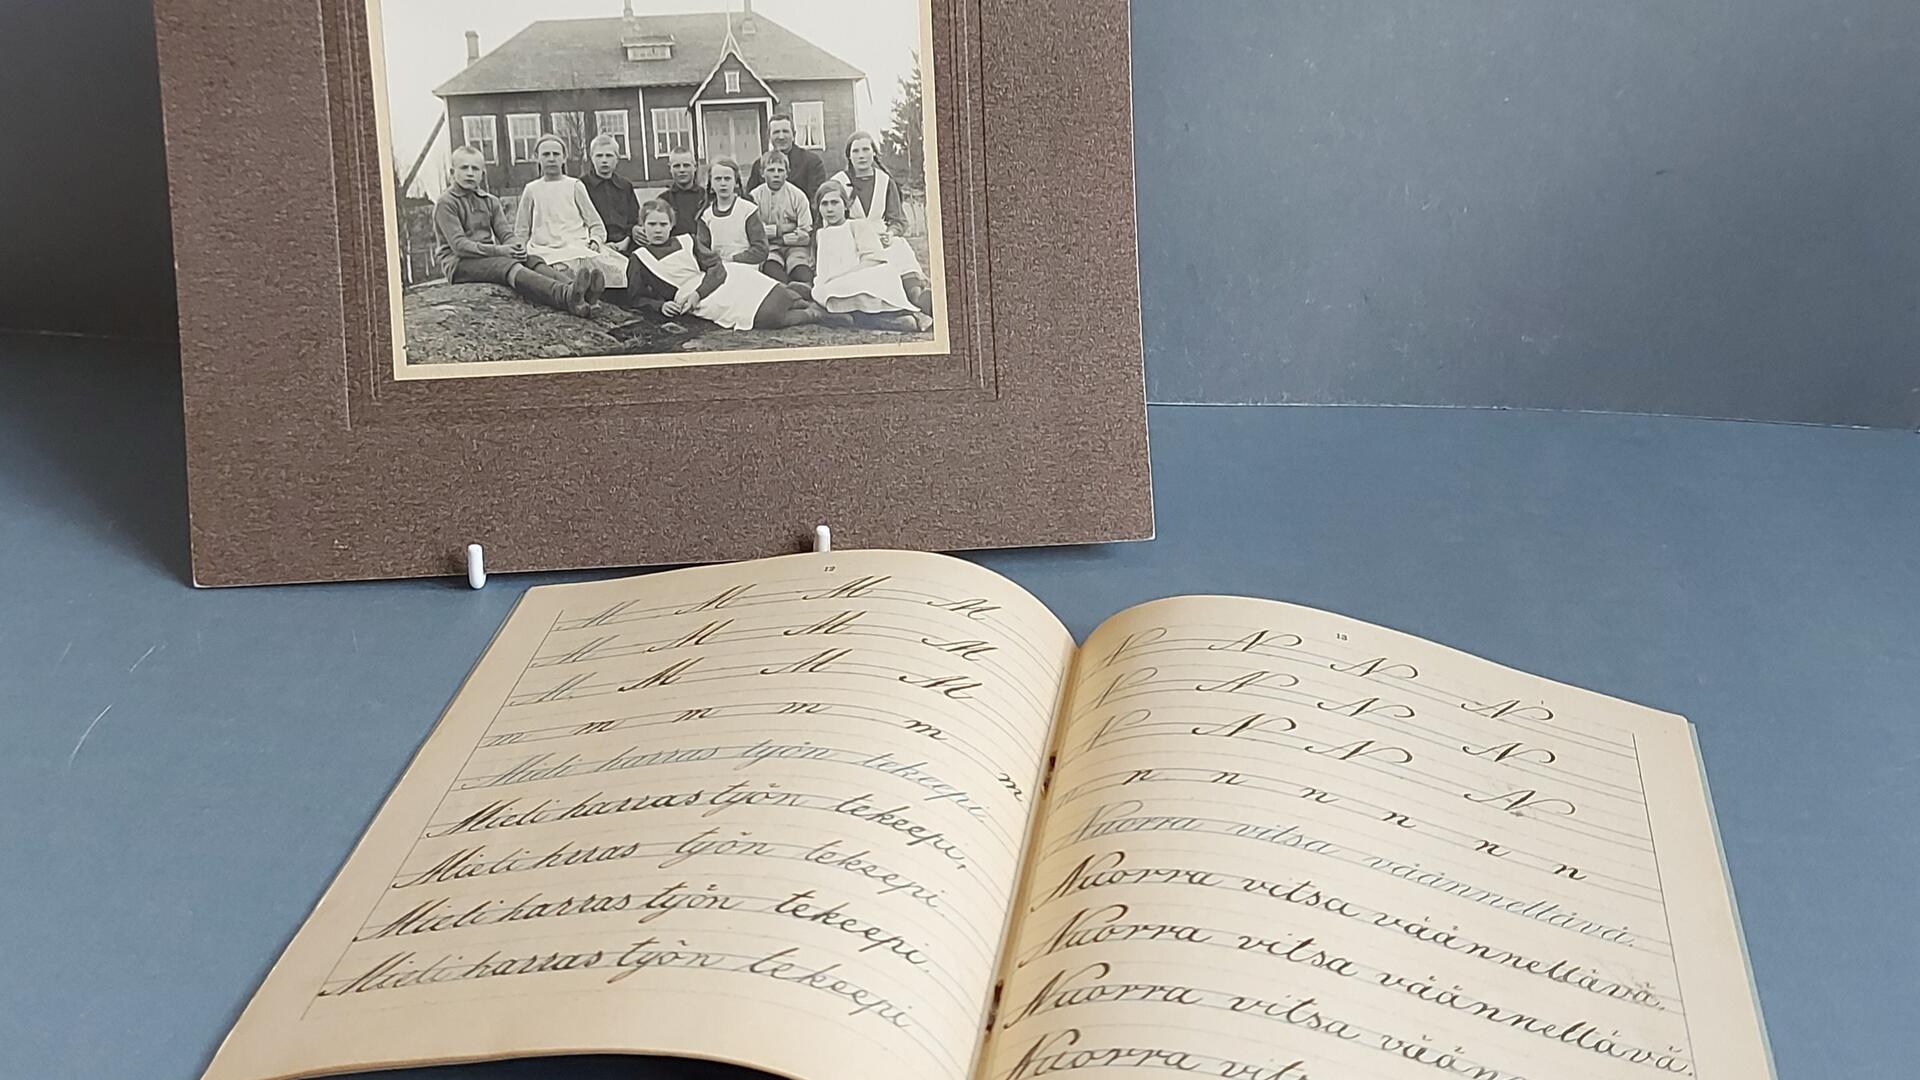 12
M M M M
M M M M
M M M M
m m m m m m
Mieli harras työn tekeepi.
Mieli harras työn tekeepi,
Mieli hrras työn tekeepi.
Mieli harras työn tekeepi.
Mieli harras työn tekeepi
13
N N N N
N N N N
N N N N
n n n n n n n
Nuorra vitsa väännettävä.
Nuorra vitsa väännettävä.
Nuorra vitsa väännettävä.
Nuorra vitsa vään
Nuorra vits